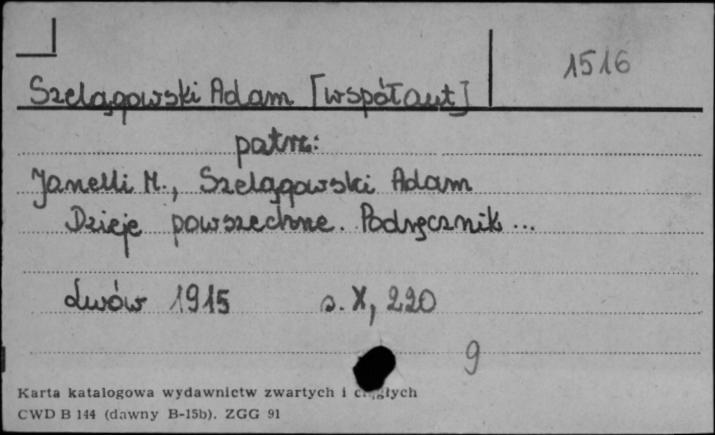 1516
Szelągowski Adam [współaut]
patrz:
Janelli M., Szelągowski Adam
Dzieje powszechne. Podręcznik...
Lwów 1915 s. X, 220
9
Karta katalogowa wydawnictw zwartych i ciągłych
CWD B 144 (dawny B-15b). ZGG 91